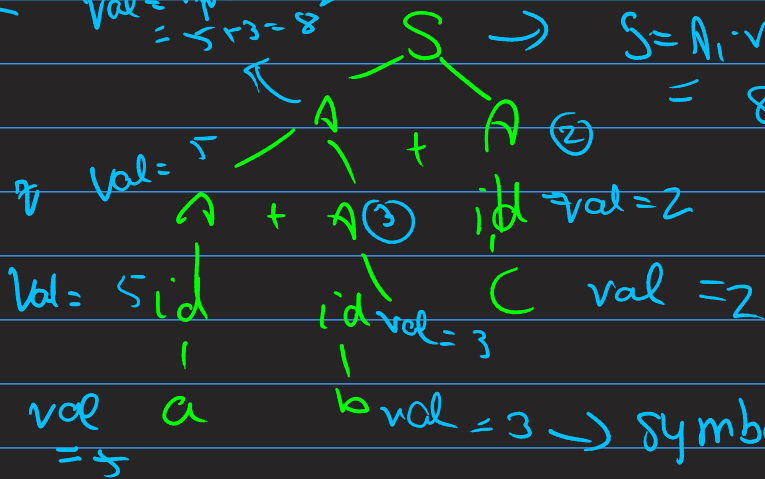 Val =
= 5 + 3 = 8 S → S = A₁ ·
= 8
A + A ②
val = 5
A + A ③ id val = 2
Val = 5 id id val = 3 C val = 2
val = 5 a b val = 3 → symb